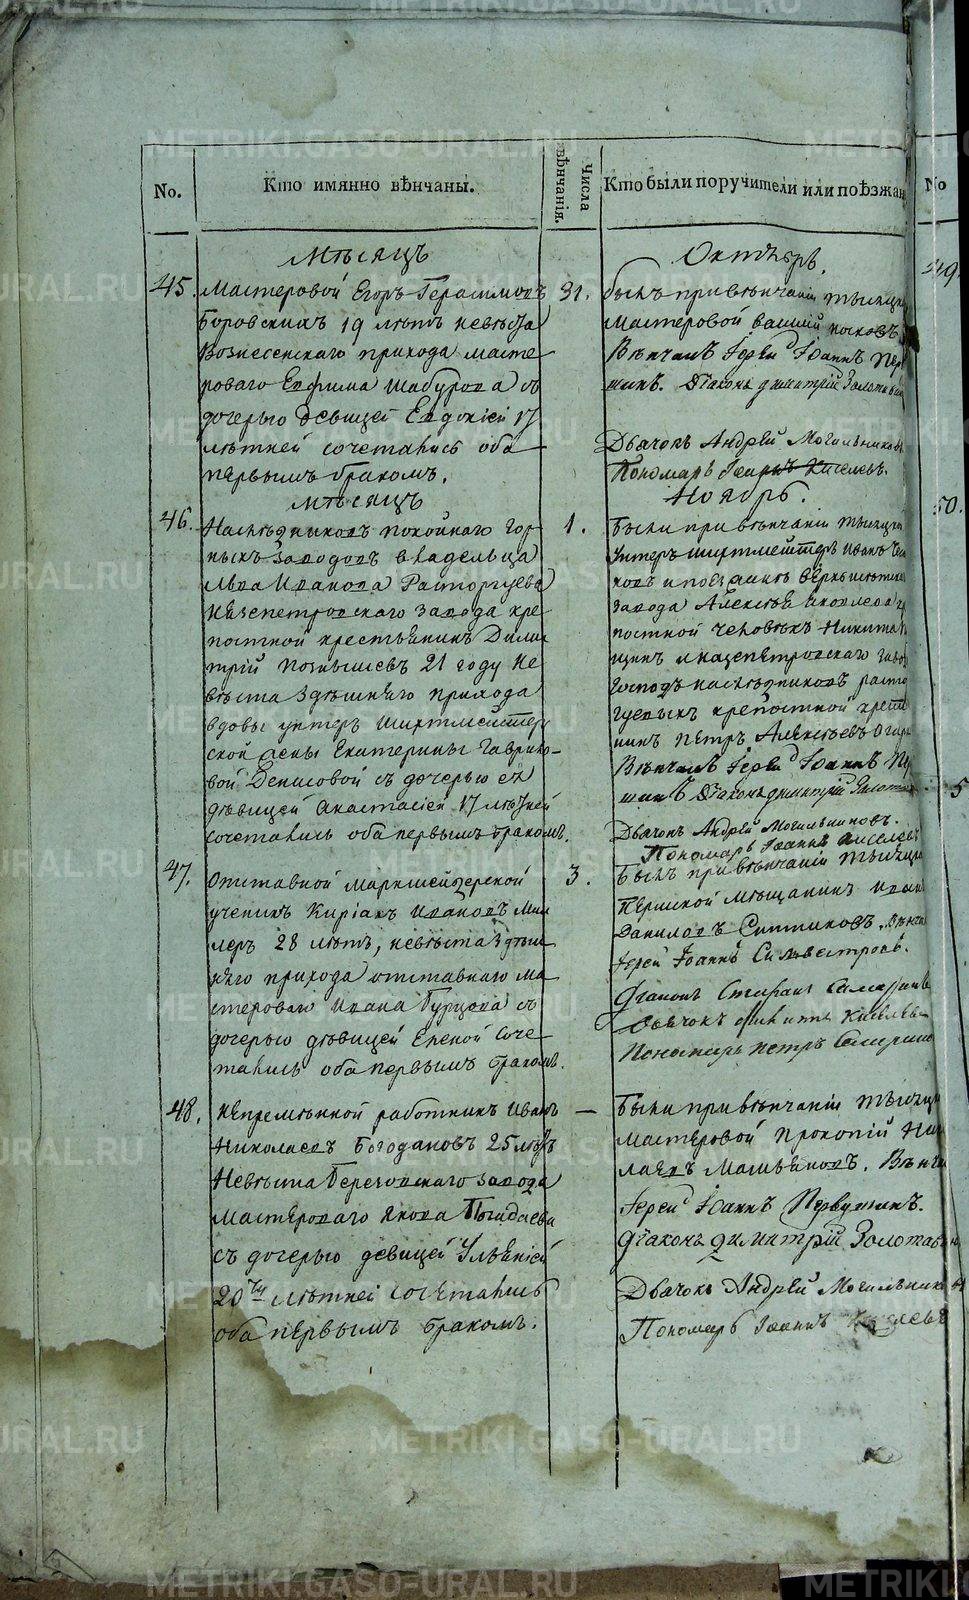 No.
Кто имянно вѣнчаны.
Числа вѣнчанія.
Кто были поручители или поѣзжан
No
Мѣсяцъ
45. Мастеровой Егоръ Герасимовъ
Боровскихъ 19 лѣтъ невѣста
Вознесенскаго прихода масте
роваго Евфима Шабурова съ
дочерью девицей Евдокіей 17
лѣтней сочетались оба
первымъ бракомъ.
31.
Октябрь.
былъ при вѣнчаніи тысяцки
Мастеровой
Вѣнчалъ Іерей Іоаннъ Пер
шинъ. Діаконъ Димитрій Золотавин
Дьячокъ Андрей Могильников
Пономарь Іоаннъ Киселевъ.
Мѣсяцъ
46. Наслѣдниковъ покойнаго гор
ныхъ заводовъ владельца
Льва Иванова Расторгуева
Нязепетровскаго завода кре
постной крестьянинъ Дими
трій 21 году не
вѣста здѣшнего прихода
вдовы унтеръ шихтмейстер
ской жены Екатерины Гаврило
вой Денисовой съ дочерью ея
дѣвицей Анастасіей 17 лѣтней
сочетались оба первымъ бракомъ.
1.
Ноябрь.
Были при вѣнчаніи тысяцки
Унтеръ шихтмейстеръ Иванъ
ковъ и поезжанъ Верхъ
завода Алексѣя Яковлева
постной человѣкъ Никита
щинъ и Нязепетровскаго заво
Господъ наслѣдниковъ расто
гуевыхъ крепостной крестя
нинъ Петръ Алексѣевъ
Вѣнчалъ Іерей Іоаннъ Пер
шинъ Діаконъ Димитрій Золотав
Дьячокъ Андрей Могильниковъ.
Пономарь Іоаннъ Киселевъ
47. Отставной маркшейдерской
ученикъ Киріакъ Ивановъ Мил
леръ 28 лѣтъ, невѣста здѣш
него прихода отставнаго ма
стероваго Ивана Бурцова съ
дочерью дѣвицей Еленой соче
тались оба первымъ бракомъ.
3.
Былъ при вѣнчаніи тысяцки
Пермской мѣщанинъ Иван
Даниловъ Ситниковъ. Вѣнча
Іерей Іоаннъ Сильвестровъ.
Діаконъ Стефанъ
Дьячокъ Никита Киселевъ
Пономарь Петръ
48. Непремѣнной работникъ Иванъ
Николаевъ Богодановъ 25 лѣтъ
Невѣста Березовскаго завода
Мастероваго Якова
съ дочерью девицей Ульяніей
20ти лѣтней сочетались
оба первымъ бракомъ.
—
Были при вѣнчаніи тысяцки
Мастеровой Прокопій Ни
лаевъ Мальяновъ. Вѣнча
Іерей Іоаннъ Первушинъ.
Діаконъ Димитрій Золотавин
Дьячокъ Андрей Могильников
Пономарь Іоаннъ Киселевъ
49.
50.
5
METRIKI.GASO-URAL.RU